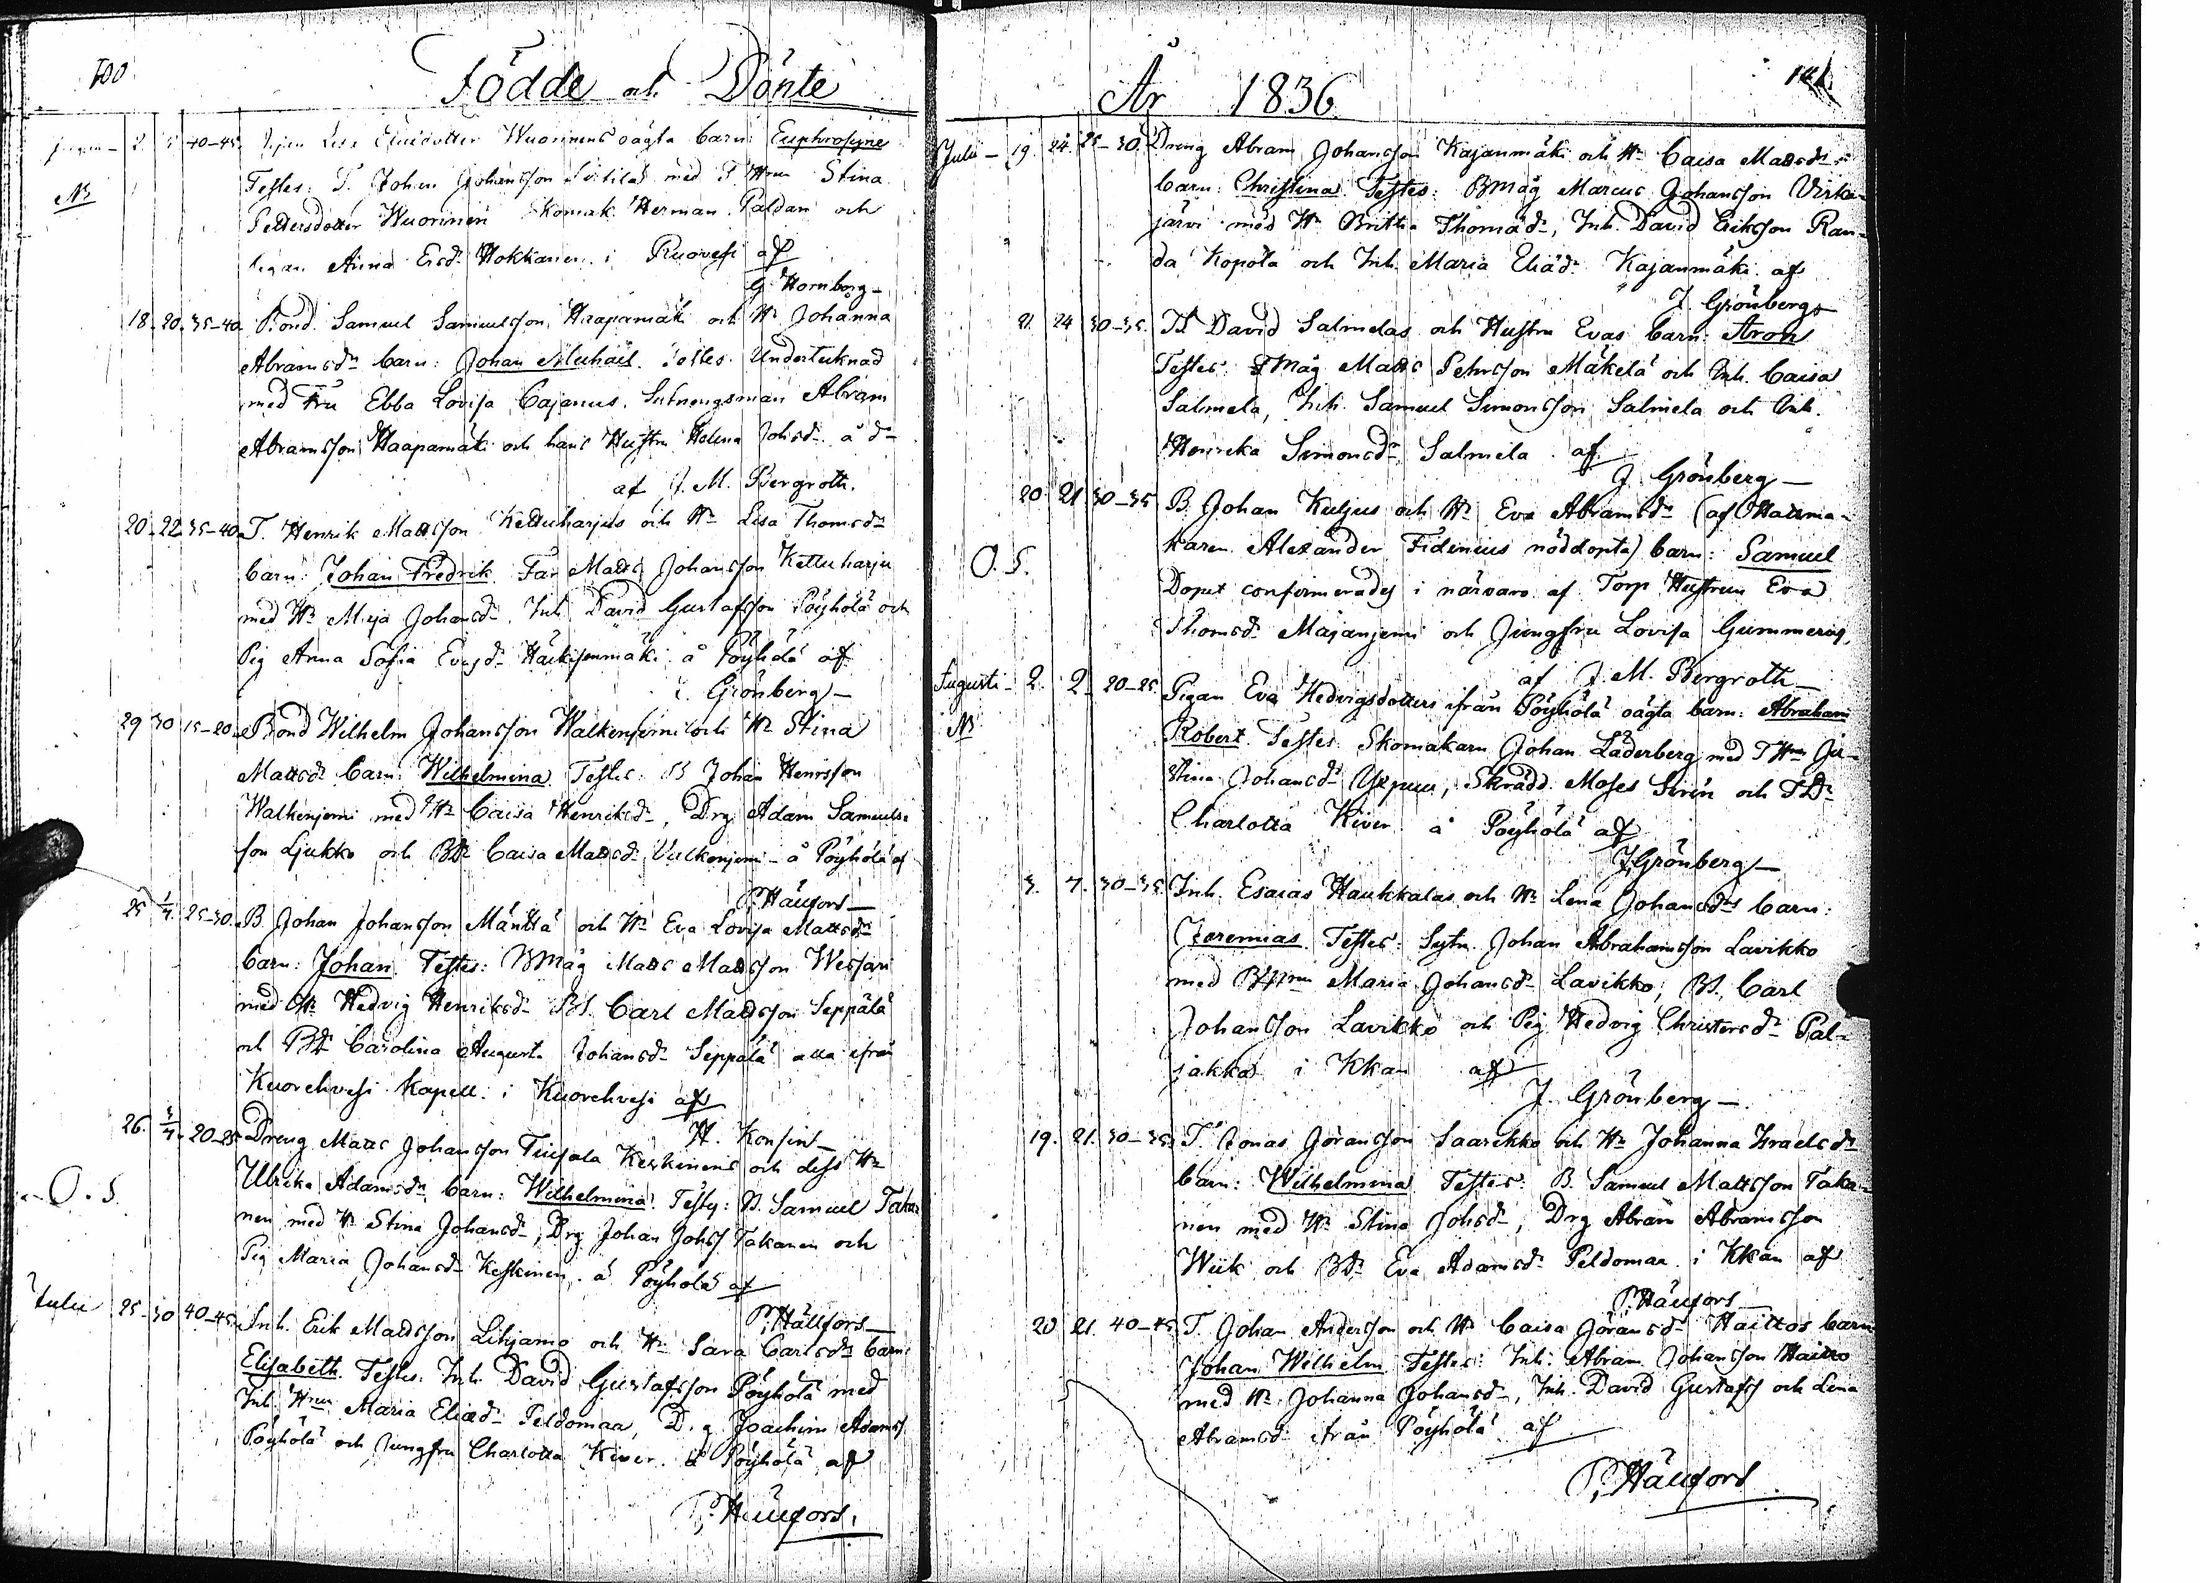 100
Födde och Döpte
2 5 40–45. Pigan Lisa Wuorinens oägta barn: Euphrosyne
Testes: T. Johan Johansson med T. Hrun Stina
Pettersdotter Wuorinen Skomak. Herman Paldan och
Pigan Anna Ersdr Hokkanen i Ruovesi af
G. Hornborg–
18. 20. 35–40. Bond. Samuel Samuelsson Haapamäki och Hr Johanna
Abramsdr barn: Johan Michaël. Testes: Undertecknad
med Fru Ebba Lovisa Cajanus. Sexmansman Abram
Abramsson Haapamäki och hans Hustru Helena Johsdr å dr
af J. M. Bergroth.
20. 22. 35–40. T. Henrik Mattsson Ketturharjus och Hr Lisa Thomsdr
barn: Johan Fredrik. Far Matts Johansson Kettuharju
med Hr Maja Johansdr. Inh. David Gustafsson Pöyhölä och
Pig Anna Sofia Evasdr Häkisenmäki å Pöyhölä af
J. Grönberg–
29 30 15–20. Bond Wilhelm Johansson Walkenjemi och Hr Stina
Mattsdr barn: Wilhelmina Testes: B Johan Henrsson
Walkenjemi med Hr Caisa Henriksdr, Drg Adam Samuels-
son Ljukko och BDr Caisa Mattsdr Valkenjemi – å Pöyhölä af
P. Hällfors–
25 1/7. 25–30. B Johan Johansson Mänttä och Hr Eva Lovisa Mattsdr
barn: Johan. Testes: BMåg Matts Mattsson Wessari
med Hr Hedvig Henriksdr BS. Carl Mattsson Seppälä
och BDr Carolina Augusta Johansdr Seppälä alla ifrån
Kuorehvesi Kapell: i Kuorehvesi af
H. Konsin–
26. 3/7. 20–25. Dreng Matts Johansson Keskinens och dess Hr
O. S.
Ulrika Adamsdr barn: Wilhelmina. Testes: B. Samuel Taka-
nen med Hr Stina Johansdr, Drg Johan Johss. Takanen och
Pig Maria Johansdr Keskinen. å Pöyhölä af
P. Hällfors–
Julii 25 30 40–45. Inh. Erik Mattsson Lihjamo och Hr Sara Carlsdrs barn:
Elisabeth. Testes: Inh. David Gustafsson Pöyhölä med
Inh. Hrun Maria Eliædr Peldomaa, Drg Joachim Adamss.
Pöyhölä och Jungfru Charlotta Kiver. å Pöyhölä af
P. Hällfors.
År 1836.
Julii – 19. 24. 25–30. Dreng Abram Johansson Kajanmäki och Hr Caisa Mattsdrs
barn: Christina. Testes: BMåg Marcus Johansson Virka-
järvi med Hr Britha Thomædr, Inh. David Eriksson Ran-
da Kopola och Inh. Maria Eliædr Kajanmäki af
J. Grönberg
21. 24 30–35. T. David Salmelas och Hustru Evas barn: Aron
Testes: Måg Matts Pehrsson Mäkelä och Inh. Caisa
Salmela, Inh. Samuel Simonsson Salmela och Inh.
Henrika Simonsdr Salmela af
J Grönberg–
20. 21 30–35 B. Johan Kuljus och Hr Eva Abramsdr (af Hattma-
O. S.
karen Alexander Fidenius nöddopta) barn: Samuel
Dopet confirmerades i närvaro af Torp Hustrun Eva
Thomsdr Majanjemi och Jungfru Lovisa Gummerus,
af J. M. Bergroth–
Augusti – 2. 2. 20–25. Pigan Eva Hedvigsdotters ifrån Pöyhölä oägta barn: Abraham
Robert. Testes: Skomakarn Johan Läderberg med T Hrun Ju-
stina Johansdr, Skrädd. Moses Sirén och TDr
Charlotta Kiver å Pöyhölä af
J. Grönberg–
3. 7. 30–35 Inh. Esaias Haukkalas och Hr Lena Johansdrs barn:
Jeremias. Testes: Sytn. Johan Abrahamsson Lavikko
med BHrun Maria Johansdr Lavikko, BS. Carl
Johansson Lavikko och Pig Hedvig Christersdr Pal-
jakka i Kkan af
J. Grönberg–
19. 21. 30–35. T. Jonas Göransson Saarikko och Hr Johanna Israelsdr
barn: Wilhelmina Testes: B. Samuel Mattsson Taka-
nen med Hr Stina Johsdr, Drg Abram Abramsson
Wiik och BDr Eva Adamsdr Peldomaa i Kkan af
P. Hällfors–
20 21. 40–45 T. Johan Andersson och Hr Caisa Göransdr Haittos barn
Johan Wilhelm Testes: Inh: Abram Johansson Haitto
med Hr Johanna Johansdr, Inh. David Gustafss och Lena
Abramsdr ifrån Pöyhölä af
P. Hällfors